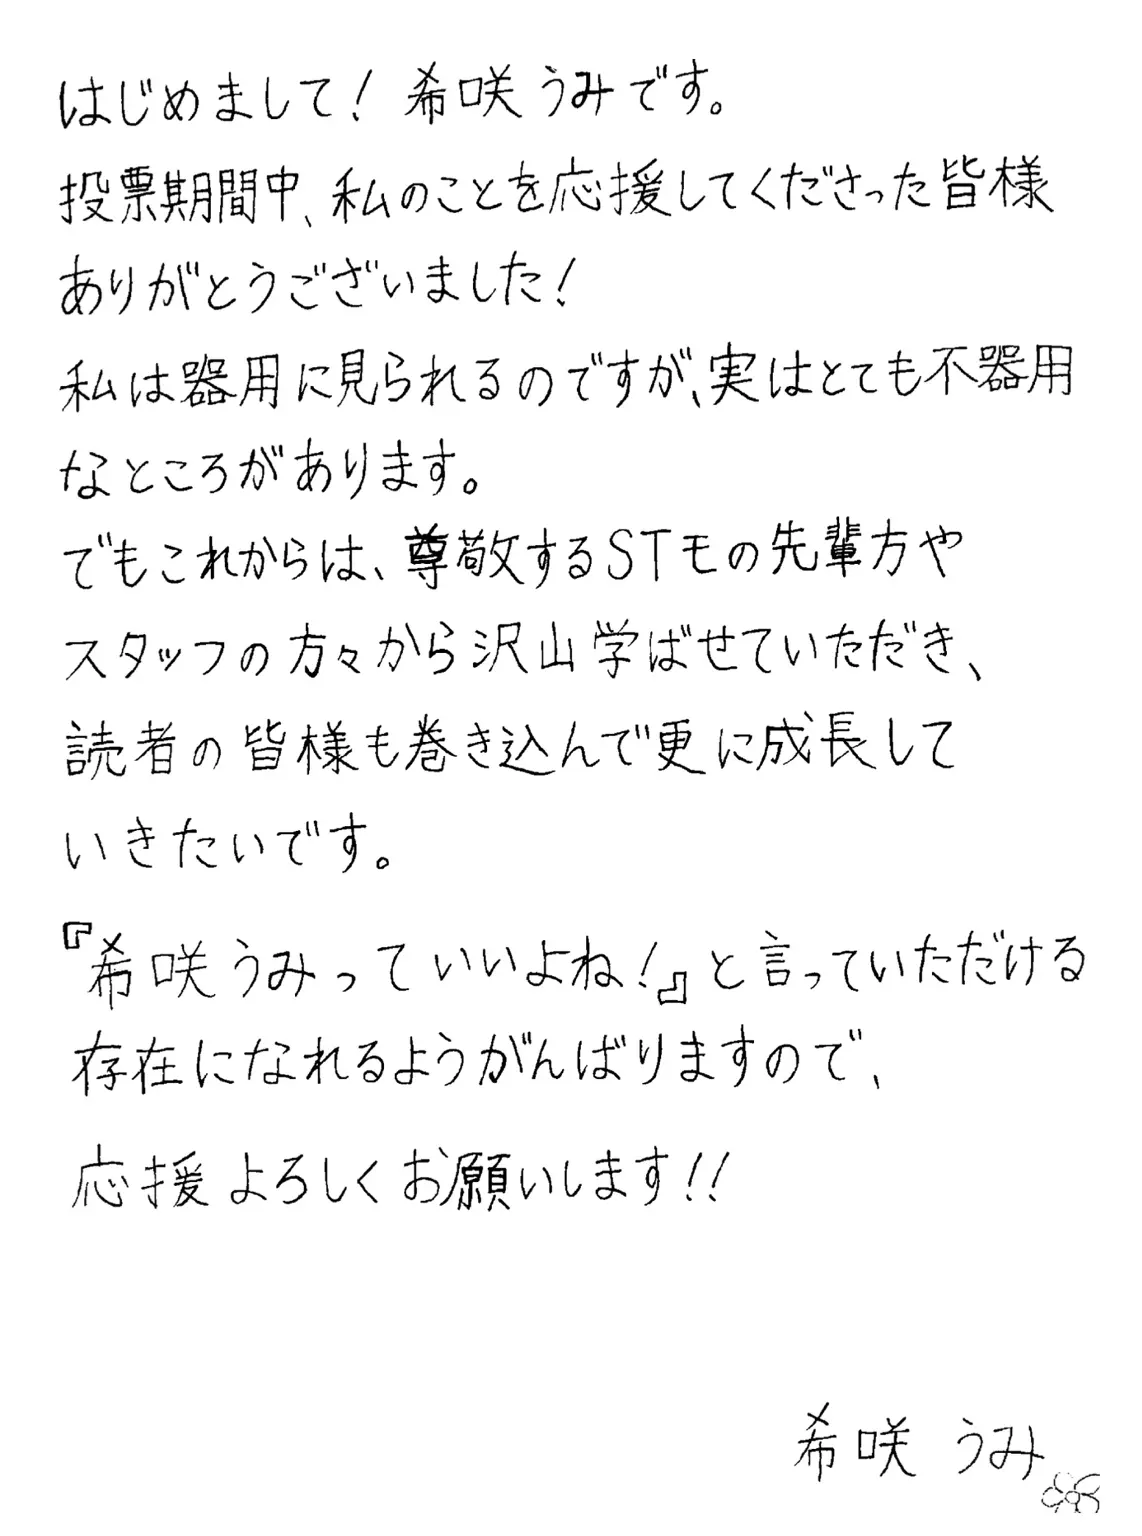 はじめまして！希咲うみです。
投票期間中、私のことを応援してくださった皆様
ありがとうございました！
私は器用に見られるのですが、実はとても不器用
なところがあります。
でもこれからは、尊敬するSTモの先輩方や
スタッフの方々から沢山学ばせていただき、
読者の皆様も巻き込んで更に成長して
いきたいです。
『希咲うみっていいよね！』と言っていただける
存在になれるようがんばりますので、
応援よろしくお願いします！！
希咲 うみ